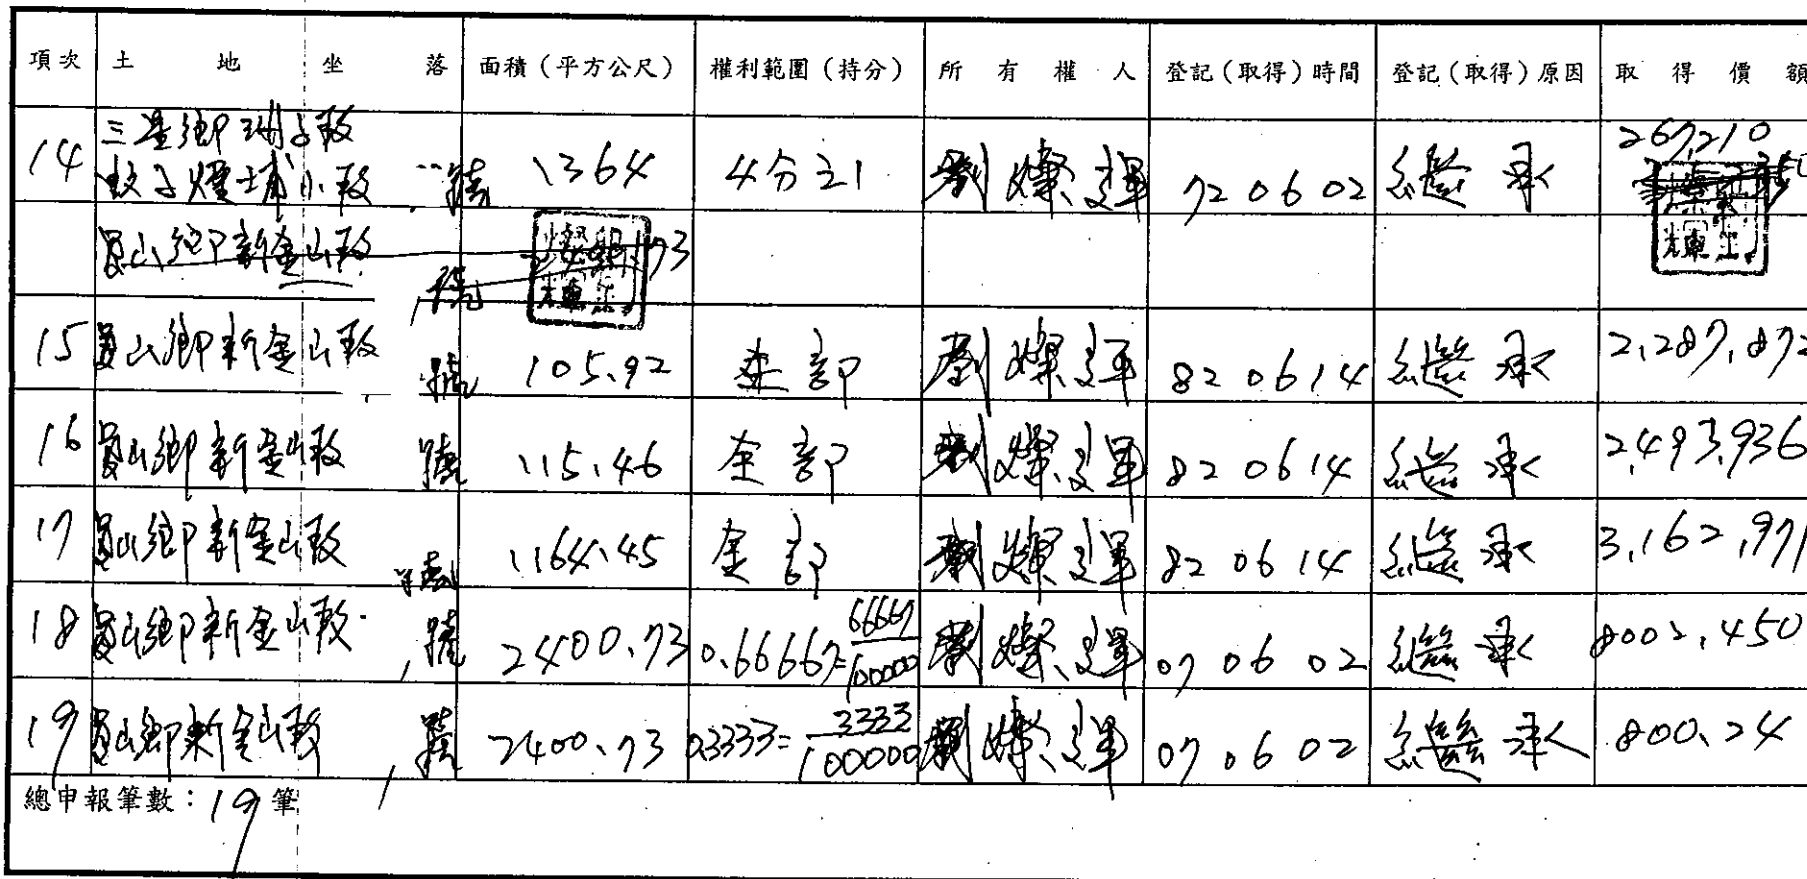 項次 土地坐落 面積（平方公尺） 權利範圍（持分） 所有權人 登記（取得）時間 登記（取得）原因 取得價額
三星鄉 段
14 小段 號 1364 4分之1 劉燦輝 72 06 02 繼承 267,210
員山鄉新金山段 號
15 員山鄉新金山段 號 105.92 全部 劉燦輝 82 06 14 繼承 2,287,872
16 員山鄉新金山段 號 115.46 全部 劉燦輝 82 06 14 繼承 2,493,936
17 員山鄉新金山段 號 1164.45 全部 劉燦輝 82 06 14 繼承 3,162,971
18 員山鄉新金山段 號 2400.73 0.66667=66667/100000 劉燦輝 07 06 02 繼承 450
19 員山鄉新金山段 號 2400.73 0.3333=3333/100000 劉燦輝 07 06 02 繼承 800.24
總申報筆數：19筆